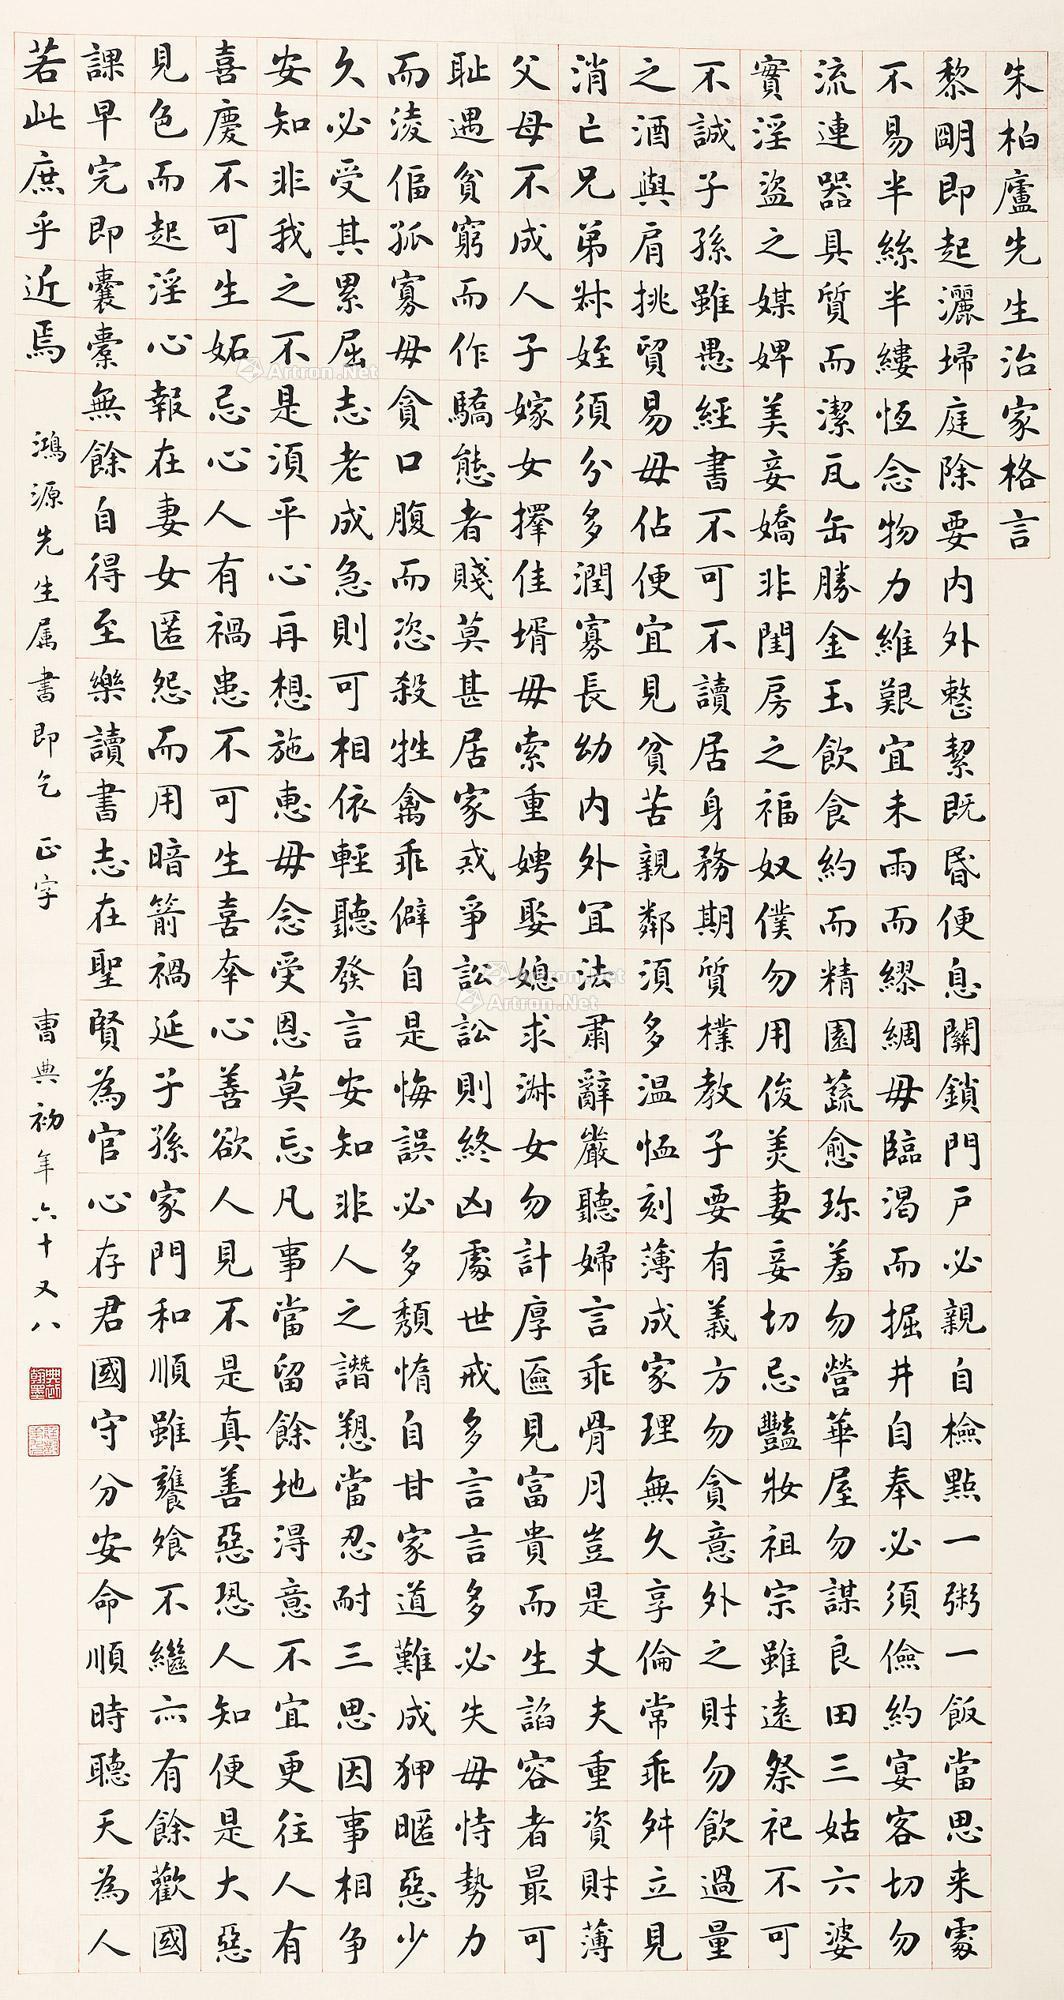 朱柏廬先生治家格言
黎明即起灑埽庭除要内外整潔既昬便息關鎖門戶必親自檢點一粥一飯當思来處
不易半絲半縷恆念物力維艱宜未雨而繆綢毋臨渴而掘井自奉必須儉約宴客切勿
流連器具質而潔瓦缶勝金玉飲食約而精園蔬愈珍羞勿營華屋勿謀良田三姑六婆
實淫盜之媒婢美妾嬌非閨房之福奴僕勿用俊美妻妾切忌豔妝祖宗雖遠祭祀不可
不誠子孫雖愚經書不可不讀居身務期質樸教子要有義方勿貪意外之財勿飲過量
之酒與肩挑貿易毋佔便宜見貧苦親鄰須多温恤刻薄成家理無久享倫常乖舛立見
消亡兄弟叔姪須分多潤寡長幼内外宜法肅辭嚴聽婦言乖骨月豈是丈夫重資財薄
父母不成人子嫁女擇佳壻毋索重娉娶媳求淑女勿計厚匳見富貴而生諂容者最可
耻遇貧窮而作驕態者賤莫甚居家戒爭訟訟則終凶處世戒多言言多必失毋恃勢力
而淩偪孤寡毋貪口腹而恣殺牲禽乖僻自是悔誤必多頽惰自甘家道難成狎暱惡少
久必受其累屈志老成急則可相依輕聽發言安知非人之譖愬當忍耐三思因事相争
安知非我之不是須平心再想施惠毋念受恩莫忘凡事當留餘地得意不宜更往人有
喜慶不可生妬忌心人有禍患不可生喜幸心善欲人見不是真善惡恐人知便是大惡
見色而起淫心報在妻女匿怨而用暗箭禍延子孫家門和順雖饔飧不繼亦有餘歡國
課早完即囊橐無餘自得至樂讀書志在聖賢為官心存君國守分安命順時聽天為人
若此庶乎近焉 鴻源先生属書即乞 正字 曹典初年六十又八
Artron.Net
Artron.Net
Artron.Net